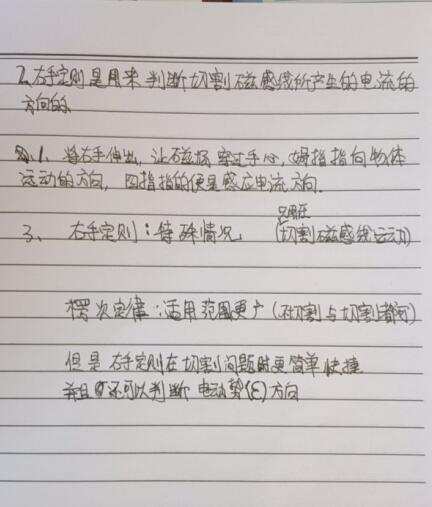 2、右手定则是用来判断切割磁感线所产生的电流的
方向的
1、将右手伸出，让磁场穿过手心，姆指指向物体
运动的方向，四指指的便是感应电流方向.
3、右手定则：特殊情况 (只用在切割磁感线运动)
楞次定律：适用范围更广 (不切割与切割皆可)
但是右手定则在切割问题时更简单快捷
并且还可以判断电动势(E)方向